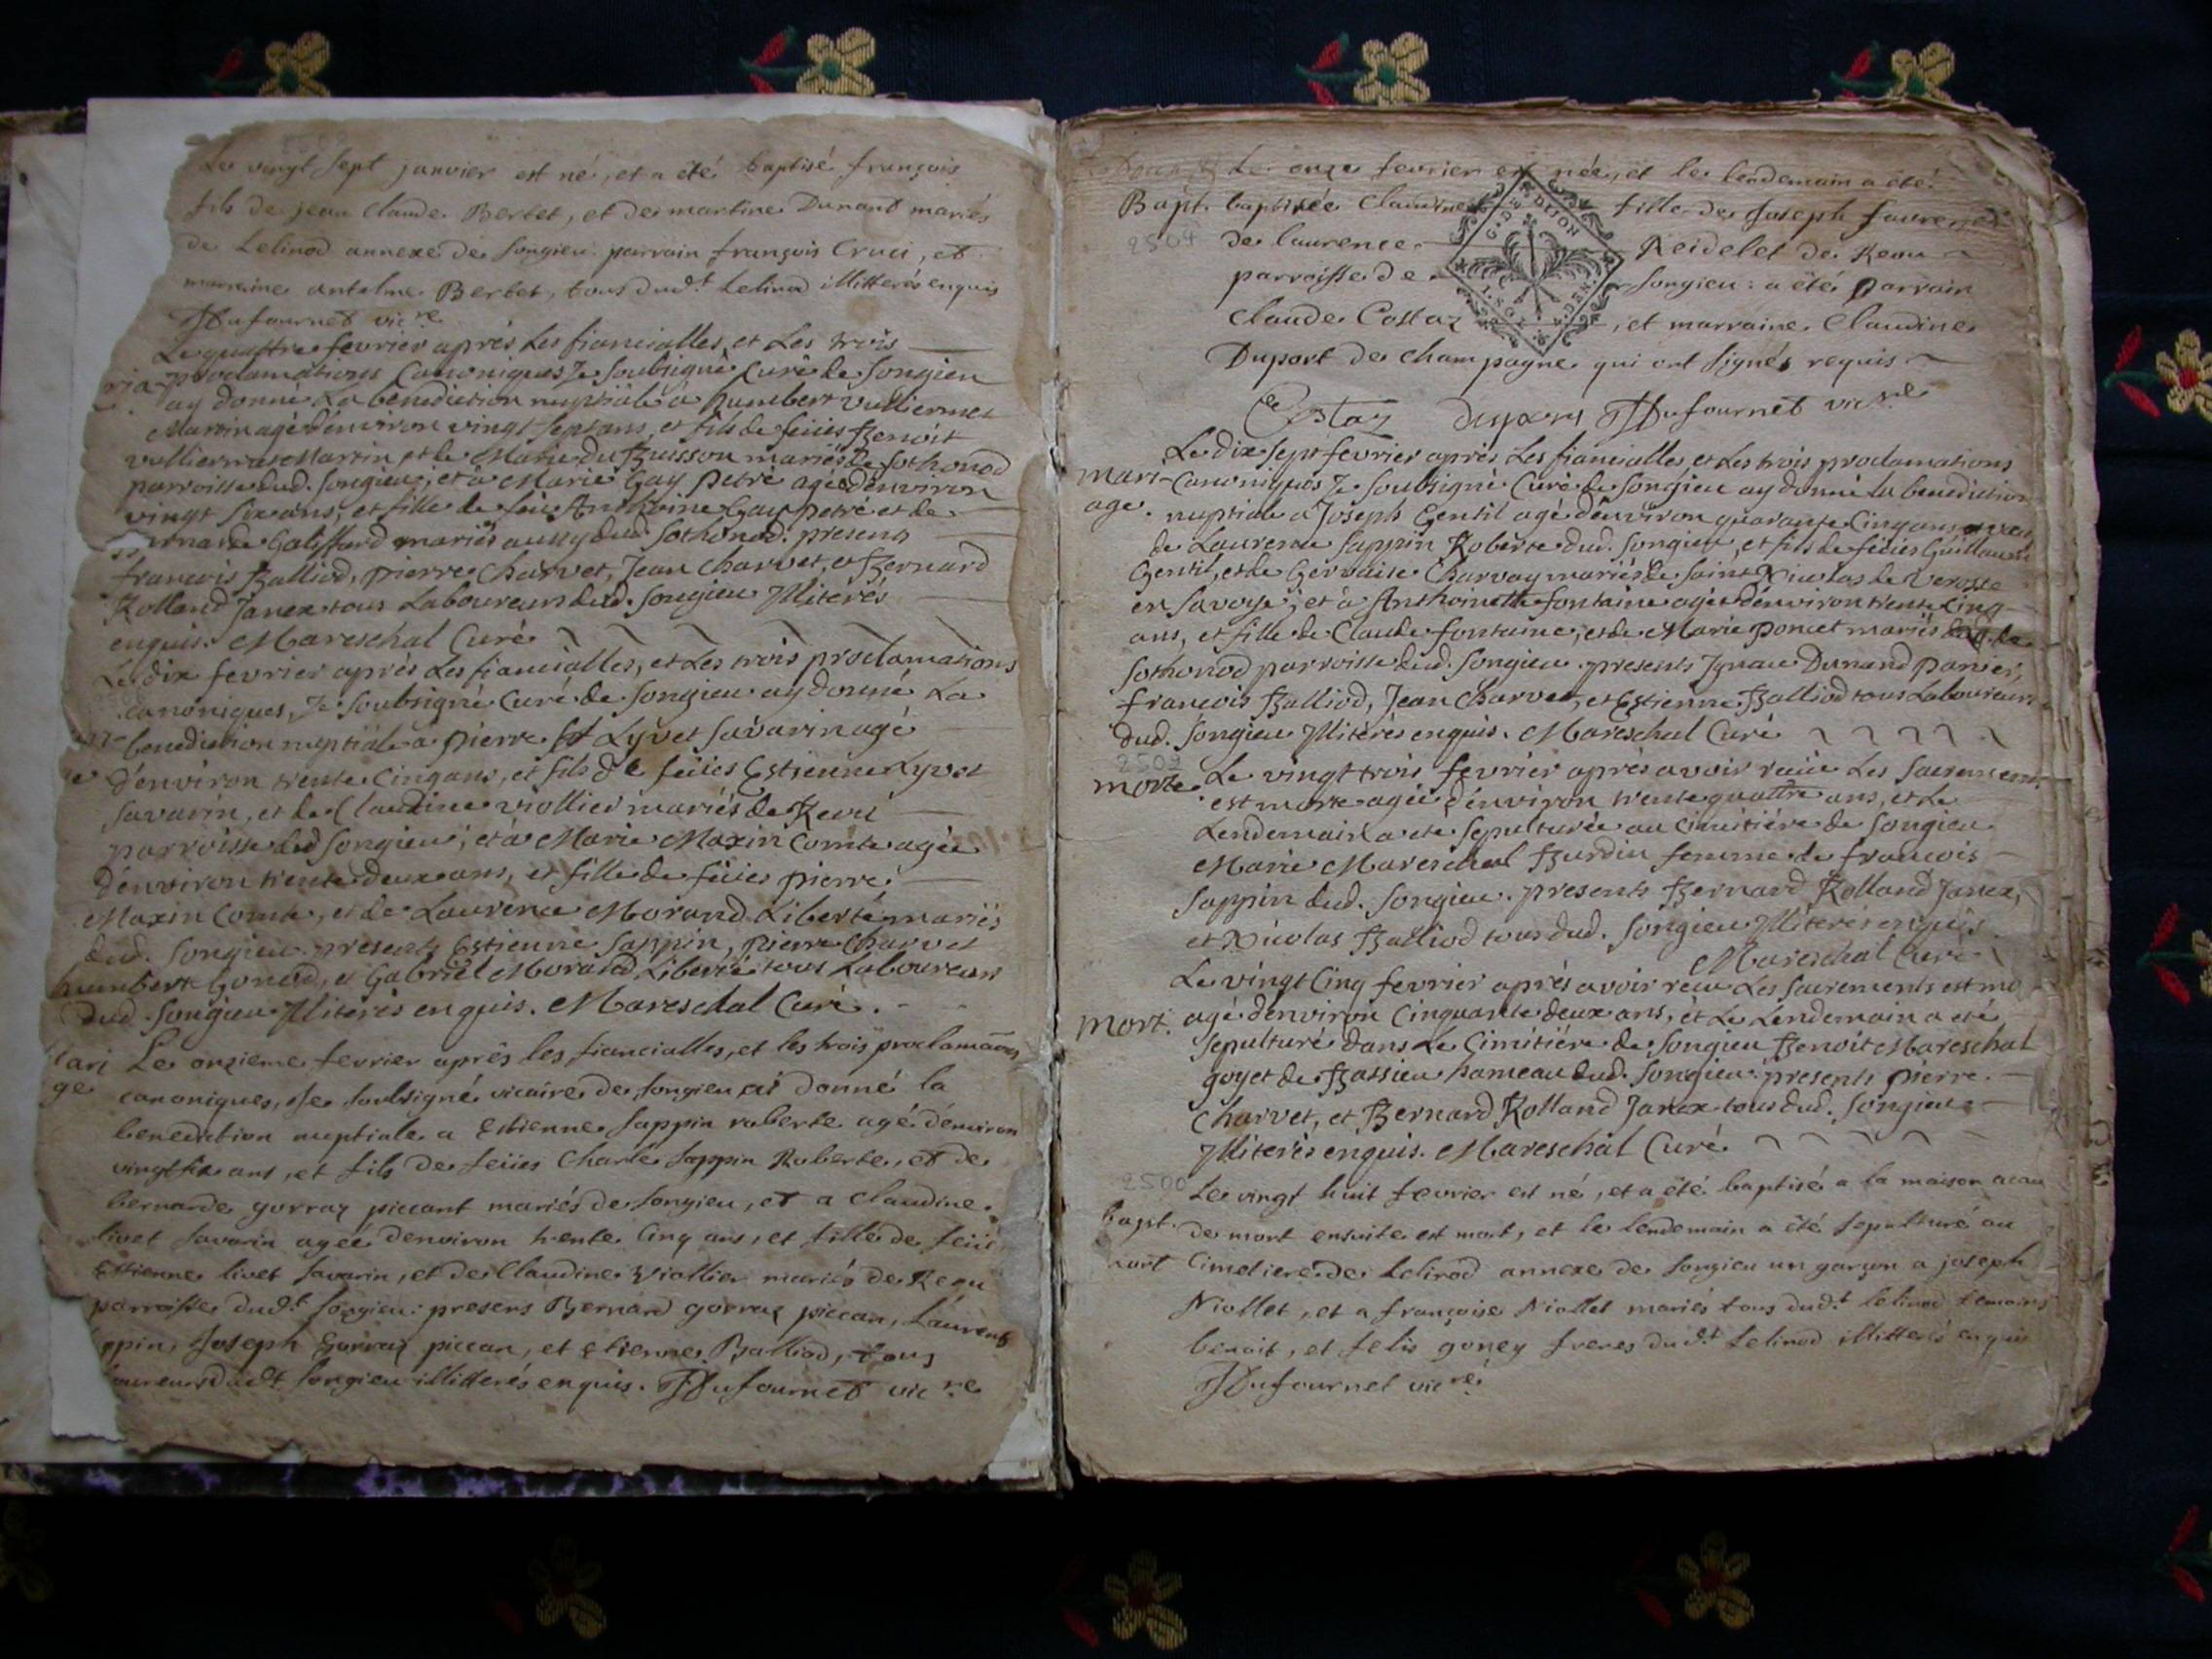 Le vingt sept janvier est né, et a été baptisé françois
fils de jean claude Bertet, et de martine Dunant mariés
de Lelinod annexe de songieu. parrain françois Cruci, et
marraine antelme Bertet, tous dud.t Lelinod illitterés enquis
Dufournet vic.re
Le quattre fevrier aprés Les fiancialles, et Les trois
proclamations Canoniques Je soubsigné Curé de Songieu
ay donné La benediction nuptiale à humbert vulliermet
Martin agé d'environ vingt sept ans, et fils de feües Benoit
vulliermet Martin, et de Marie Du Buisson mariés de Sothonod
parroisse dud. Songieu; et à Marie Gay Petré agée d'environ
vingt six ans, et fille de feu Anthoine Gay petré et de
Galiffard mariés aussy dud. Sothonod. presents
francois Balliod, pierre Charvet, Jean Charvet, et Bernard
Rolland Janex tous Laboureurs dud. Songieu Illiterés
enquis. Mareschal Curé
Le dix fevrier aprés Les fiancialles, et Les trois proclamations
canoniques, Je Soubsigné Curé de Songieu ay donné La
benediction nuptiale à pierre Lyvet Savarin agé
d'environ trente Cinq ans, et fils de feües Estienne Lyvet
Savarin, et de Claudine viollier mariés de
parroisse dud Songieu; et à Marie Maxin Comte agée
d'environ trente deux ans, et fille de feües pierre
Maxin Comte, et de Laurence Morand Liberté mariés
dud. Songieu. presents Estienne Sappin, Pierre Charvet
humbert Gonod, et Gabriel Morand Liberté tous Laboureurs
dud. Songieu Illiterés enquis. Mareschal Curé.
Mari Le onzieme fevrier aprés les fiancialles, et les trois proclamãons
ge canoniques, Je soubsigné vicaire de songieu ai donné la
benediction nuptiale a Estienne Sappin roberte agé d'environ
vingt six ans, et fils de feües Charle Sappin Roberte, et de
bernarde gorraz piccant mariés de songieu, et a Claudine
livet Savarin agée denviron trente Cinq ans, et fille de feüe
Estienne livet Savarin, et de Claudine Viollier mariés de
parroisse dud.t songieu: presens Bernard gorraz piccan, Laurent
ppin, Joseph Gorraz piccan, et etienne Balliod, tous
oureurs dud.t songieu illitterés enquis. Dufournet vic.re
Le onze fevrier est née, et le lendemain a été
Bapt. baptisée Claudine fille de Joseph favre et
2504 de laurence Reidelet de
parroisse de songieu: a été parrain
Claude Costaz, et marraine Claudine
Duport de champagne qui ont signés requis
G.D. DE DIJON
Costaz duport Dufournet vic.re
Le dix sept fevrier aprés Les fiancialles, et Les trois proclamations
Mari- Canoniques Je Soubsigné Curé de Songieu ay donné La benediction
age. nuptiale à Joseph Gentil agé d'environ quarante Cinq ans
de Laurence Sappin Roberte dud. Songieu, et fils de feües Guillaume
Gentil, et de Gervaise Charvay mariés de Saint Nicolas de Verosse
en Savoye; et à Anthoinette fontaine agée d'environ trente Cinq
ans, et fille de Claude fontaine, et de Marie poncet mariés
Sothonod parroisse dud. Songieu. presents Ignace Dunand Panier,
francois Balliod, Jean Charvet, et Estienne Balliod tous Laboureurs
dud. Songieu Illiterés enquis. Mareschal Curé
morte Le vingt trois fevrier aprés avoir receu Les Sacrements
est morte agée d'environ trente quattre ans, et Le
Lendemain a eté sepulturée au Cimitiére de Songieu
Marie Mareschal Burdin femme de francois
Sappin dud. Songieu. presents Bernard Rolland Janex,
et Nicolas Balliod tous dud. Songieu Illiterés enquis.
Mareschal Curé
Le vingt Cinq fevrier aprés avoir receu Les Sacrements est mo
mort. agé d'environ Cinquante deux ans, et Le Lendemain a eté
Sepulturé dans Le Cimitiére de Songieu Benoit Mareschal
goyet de Bassieu hameau dud. Songieu. presents pierre
Charvet, et Bernard Rolland Janex tous dud. Songieu
Illiterés enquis. Mareschal Curé
2500 Le vingt huit fevrier est né, et a été baptisé a la maison acau
bapt. de mort ensuite est mort, et le lendemain a été sepulturé au
mort Cimetiere de Lelinod annexe de songieu un garçon a joseph
Niollet, et a françoise Niollet mariés tous dud.t lelinod temoins
benoit, et felix goney freres dud.t Lelinod illitterés enquis
Dufournet vic.re